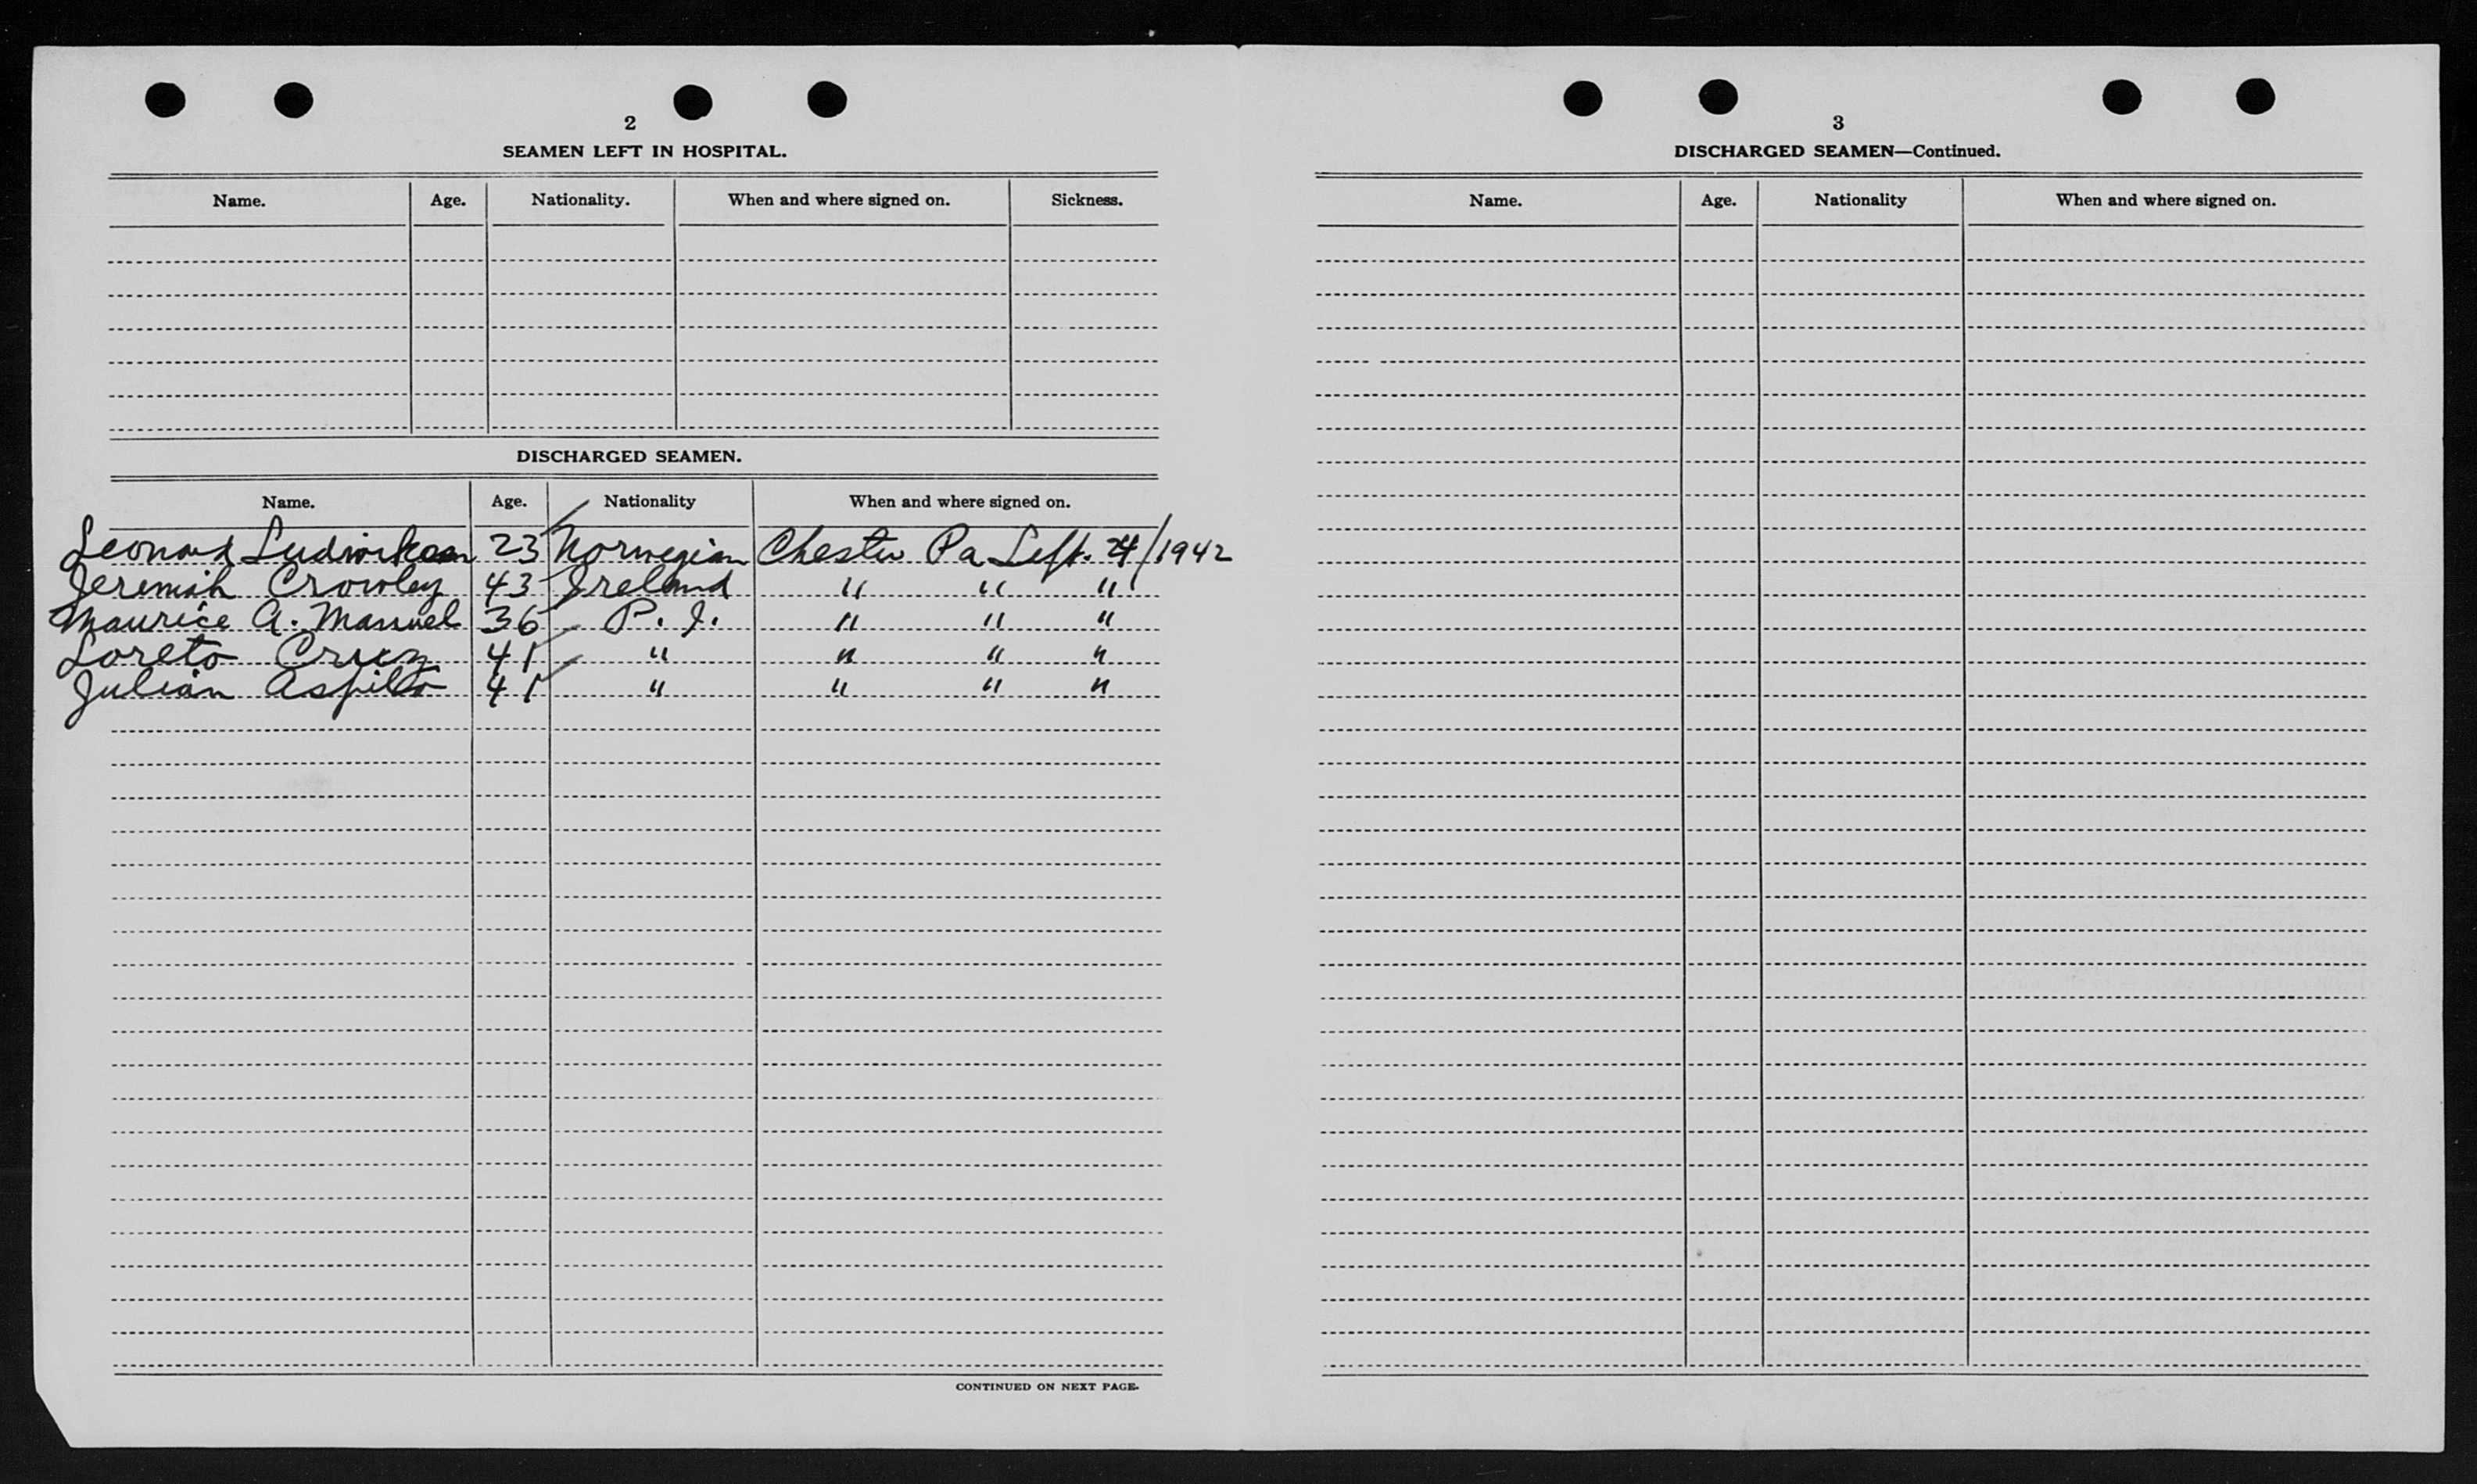 2
SEAMEN LEFT IN HOSPITAL.
Name. Age. Nationality. When and where signed on. Sickness.
DISCHARGED SEAMEN.
Name. Age. Nationality When and where signed on.
Leonard 23 Norwegian Chester Pa Sept. 4/1942
Jeremiah Crowley 43 Ireland " " "
Maurice A. Manuel 36 P. I. " " "
Loreto Cruz 41 " " " "
Julian 41 " " " "
CONTINUED ON NEXT PAGE.
3
DISCHARGED SEAMEN—Continued.
Name. Age. Nationality When and where signed on.